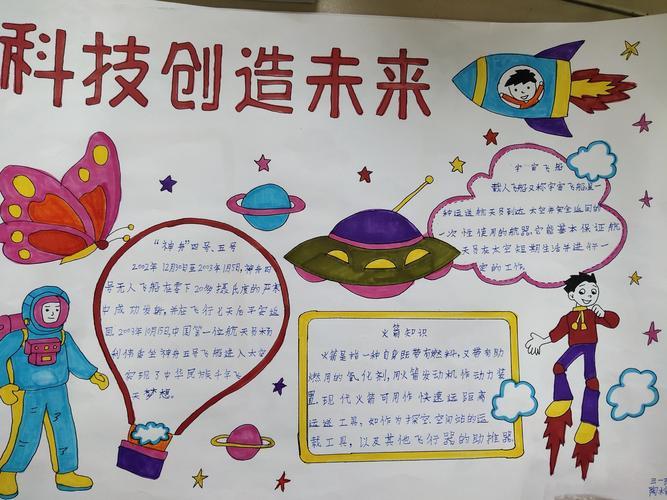 科技创造未来
宇宙飞船
载人飞船又称宇宙飞船是一
种运送航天员到达太空并安全返回的
一次性使用的航器.它能基本保证航
天员在太空短期生活并进行一
定的工作。
“神舟”四号、五号
2002年12月30日至2003年1月5日,神舟四
号无人飞船在零下20多摄氏度的严寒
中成功发射,并在飞行七天后平安返
回2003年10月15日,中国第一位航天员杨
利伟乘坐神舟五号飞船进入太空
实现了中华民族千年飞
天梦想。
火箭知识
火箭是指一种自身既带有燃料,又带有助
燃用的氧化剂,用火箭发动机作动力装
置.现代火箭可用作快速远距离
运送工具,如作为探空,空间站的运
载工具,以及其他飞行器的助推器